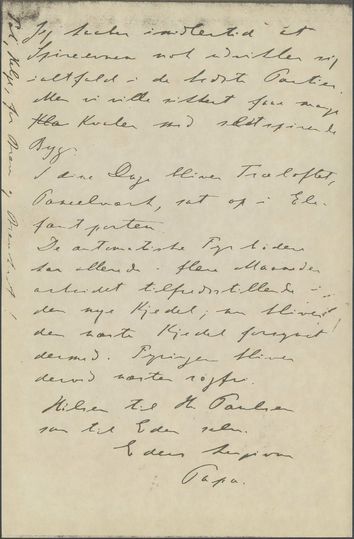 Jeg haaber imidlertid at
Spireevnen nok udvikler sig
ialtfald i de bedste Partier.
Men vi ville sikkert faae mange
Kvaler med slet spirende
Byg.
I disse Dage bliver Træloftet,
Paneelværk, sat op i Ele-
fantporten.
De automatiske Fyrbødere
har allerede i flere Maaneder
arbeidet tilfredsstillende i
den nye Kjedel; nu bliver
den næste Kjedel forsynet
dermed. Fyringen bliver
derved næsten røgfri.
Hilsen til Hr Poulsen
som til Eder selv.
Eders hengivne
Papa.